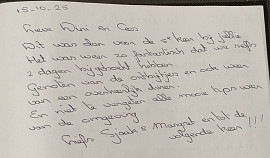 15-10.25
Lieve Wini en Cees
Dit was dan voor de 1e keer bij jullie
Het was weer zo fantastisch dat we zelfs
2 dagen bijgeboekt hebben
Genoten van de ontbijtjes en ook weer
van een overheerlijk diner.
En niet te vergeten alle mooie tips weer
van de omgeving
Liefs Sjaak & Margret en tot de
volgende keer !!!